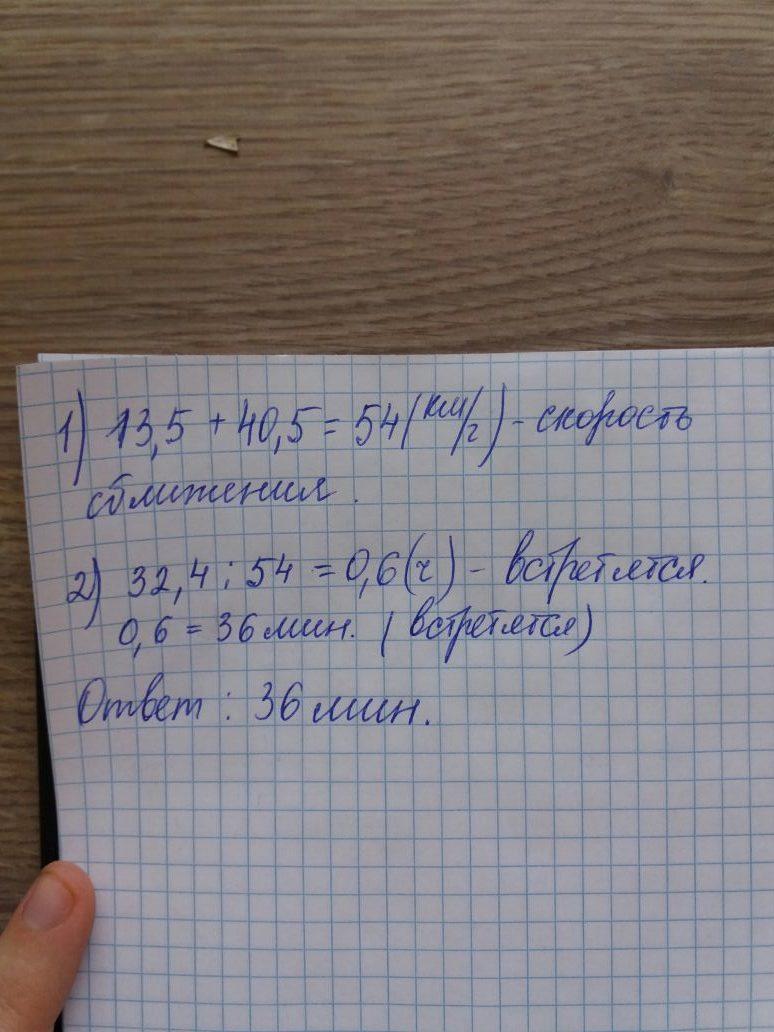 1) 13,5 + 40,5 = 54 (км/ч) - скорость
сближения.
2) 32,4 : 54 = 0,6 (ч) - встретятся.
0,6 = 36 мин. (встретятся)
Ответ : 36 мин.